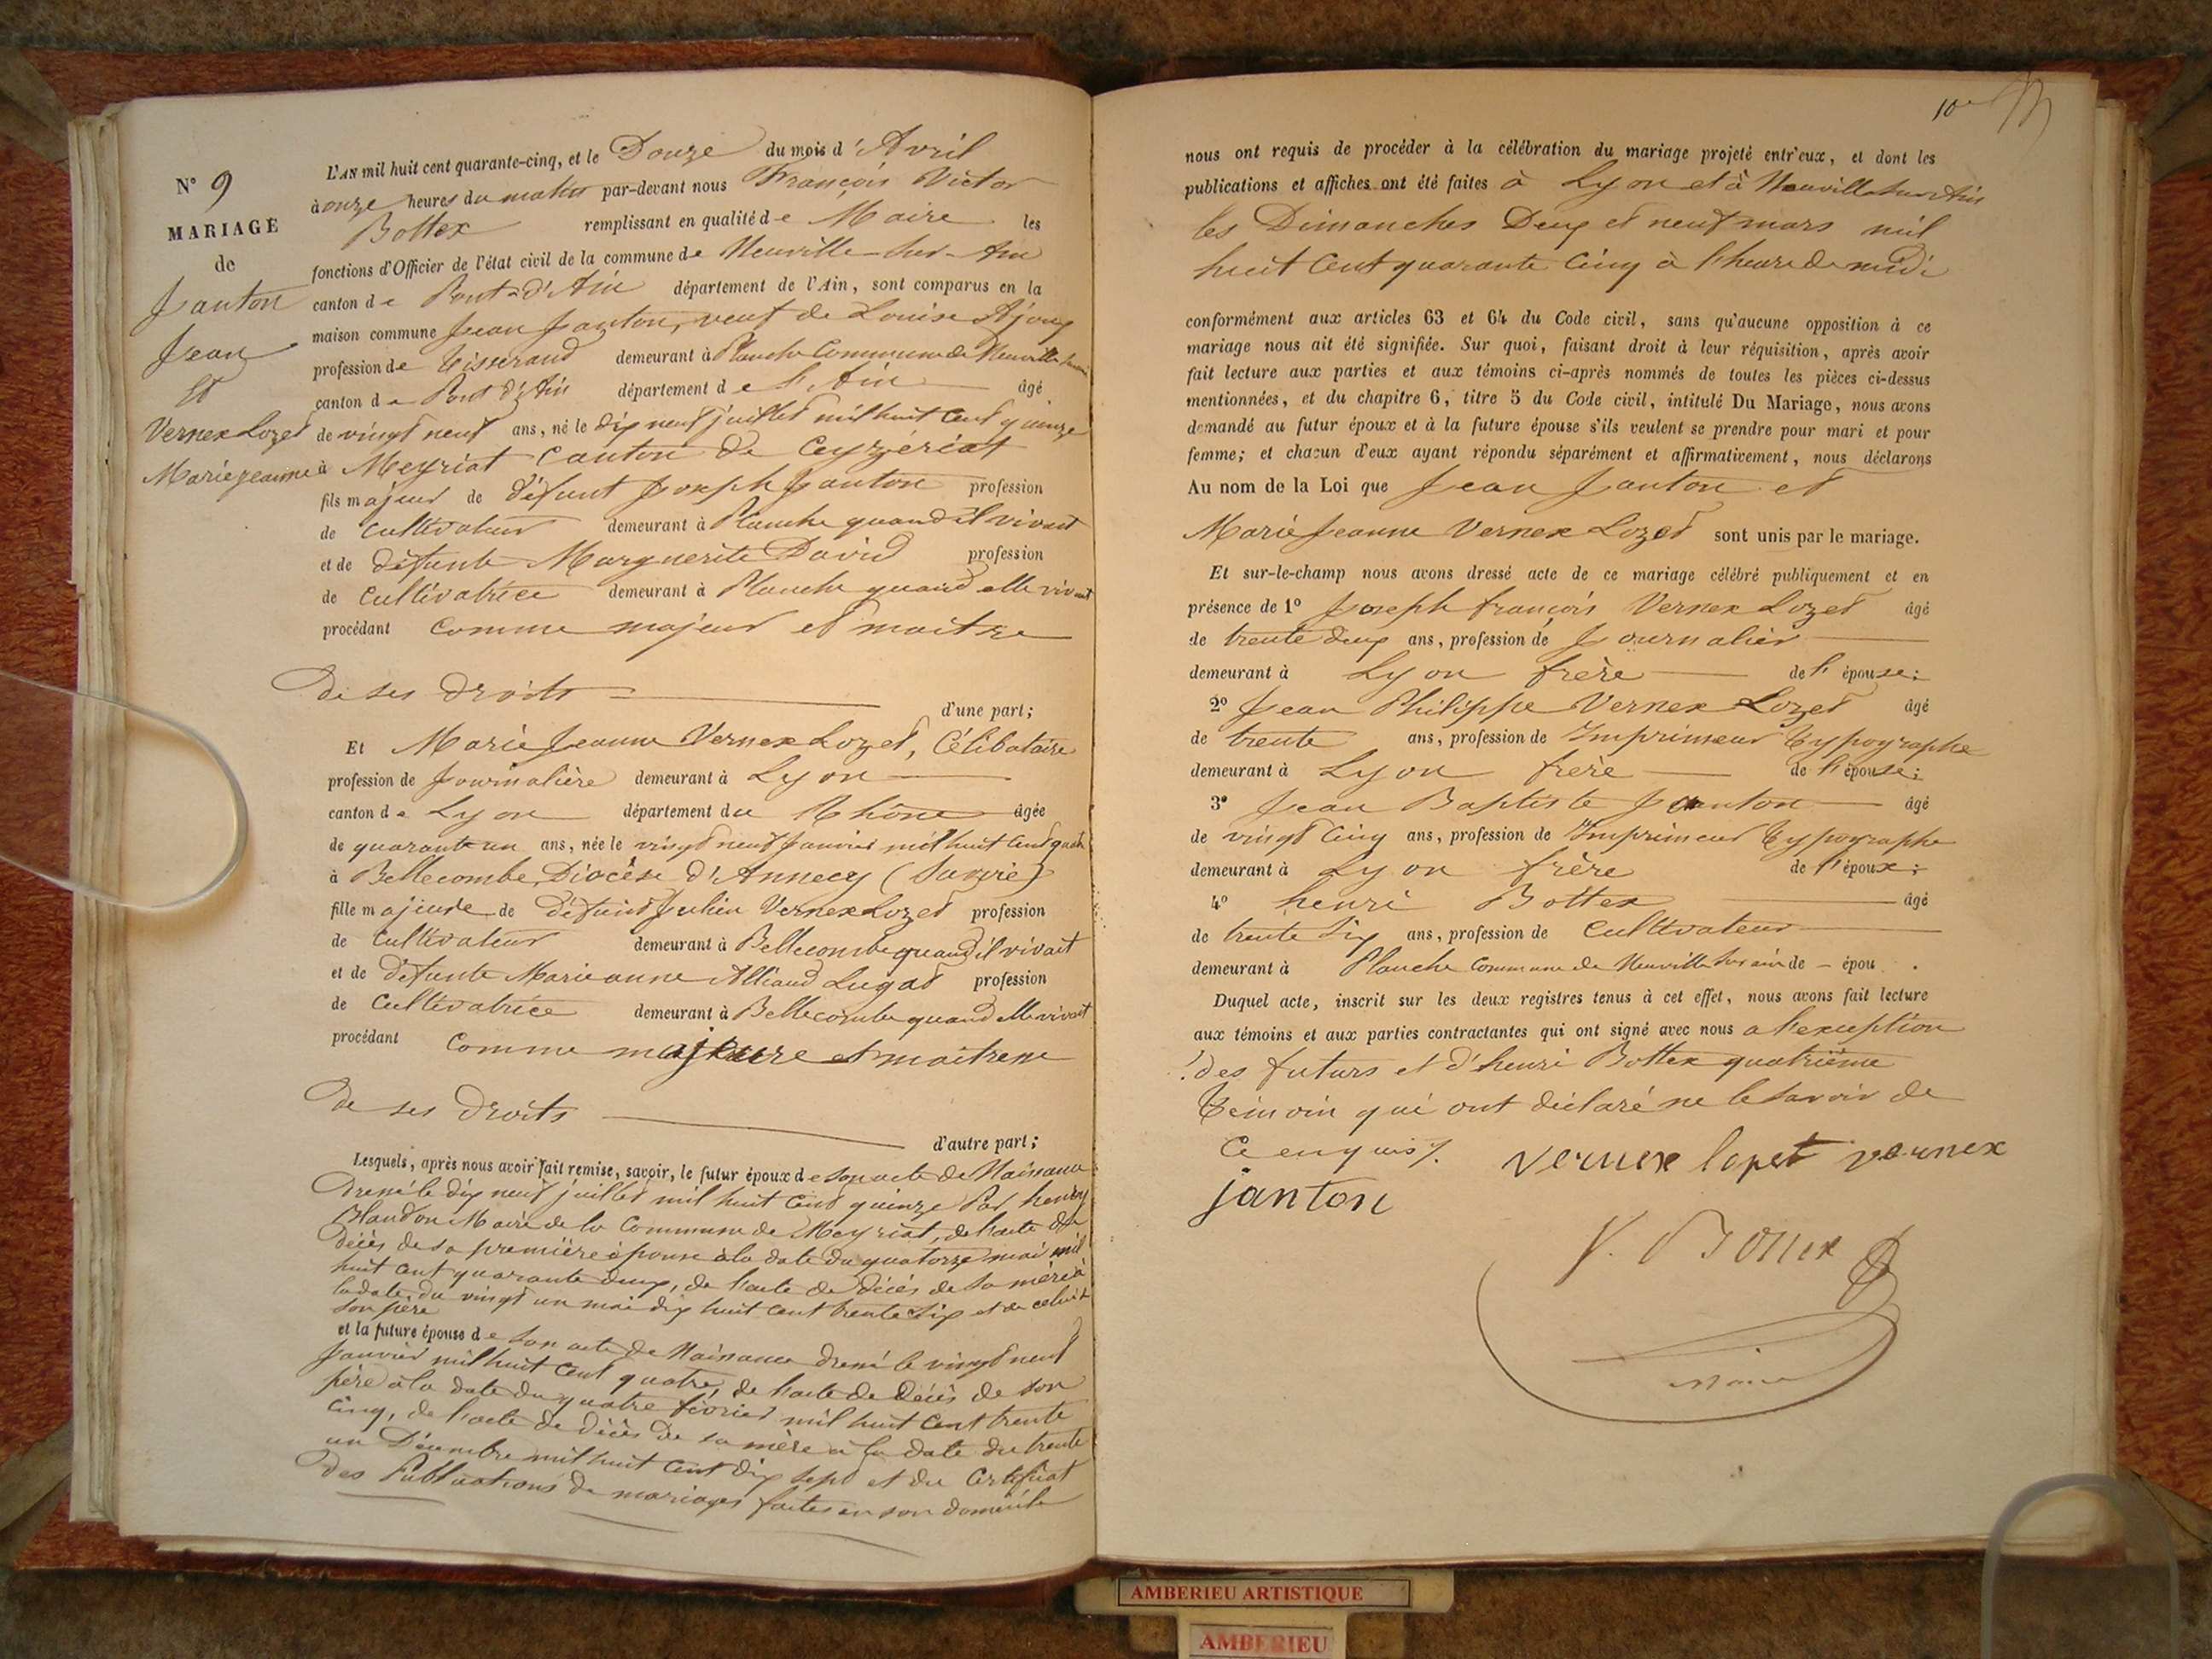 N° 9
MARIAGE
de
Janton
Jean
et
Vernex Lozet
Marie jeanne
L'AN mil huit cent quarante-cinq, et le Douze du mois d'Avril
à onze heures du matin par-devant nous François Victor
Bottex remplissant en qualité de Maire les
fonctions d'Officier de l'état civil de la commune de Neuville-sur-Ain
canton de Pont-d'Ain département de l'Ain, sont comparus en la
maison commune Jean Janton, veuf de Louise
profession de Tisserand demeurant à Planche Commune de Neuville
canton de Pont d'Ain département de l'Ain âgé
de vingt neuf ans, né le dix neuf juillet mil huit cent quinze
à Meyriat Canton de Ceyzériat
fils majeur de défunt Joseph Janton profession
de Cultivateur demeurant à Planche quand il vivait
et de défunte Marguerite David profession
de Cultivatrice demeurant à Planche quand elle vivait
procédant Comme majeur et maître
De ses Droits d'une part;
Et Marie Jeanne Vernex Lozet, Célibataire
profession de Journalière demeurant à Lyon
canton de Lyon département du Rhône âgée
de quarante un ans, née le vingt neuf Janvier mil huit cent quatre
à Bellecombe, Diocèse d'Annecy (Savoie)
fille majeure de défunt Julien Vernex Lozet profession
de Cultivateur demeurant à Bellecombe quand il vivait
et de défunte Marie anne Alliaud Lugat profession
de Cultivatrice demeurant à Bellecombe quand elle vivait
procédant Comme majeure et maitresse
De ses Droits d'autre part;
Lesquels, après nous avoir fait remise, savoir, le futur époux de son acte de Naissance
Dressé le dix neuf juillet mil huit cent quinze Par henry
Blandon Maire de la Commune de Meyriat, de l'acte de
Décès de sa première épouse à la date du quatorze mai mil
huit cent quarante deux, de l'acte de Décès de sa mère à
la date du vingt un mai dix huit cent trente six et de celui de
son père
et la future épouse de son acte de Naissance Dressé le vingt neuf
Janvier mil huit cent quatre, de l'acte de Décès de son
père à la date du quatre février mil huit cent trente
cinq, de l'acte de Décès de sa mère à la date du trente
un Décembre mil huit cent dix sept et du Certificat
des Publications de mariages faites en son domicile
10
nous ont requis de procéder à la célébration du mariage projeté entr'eux, et dont les
publications et affiches ont été faites à Lyon et à Neuville sur Ain
les Dimanches Deux et neuf mars mil
huit cent quarante cinq à l'heure de midi
conformément aux articles 63 et 64 du Code civil, sans qu'aucune opposition à ce
mariage nous ait été signifiée. Sur quoi, faisant droit à leur réquisition, après avoir
fait lecture aux parties et aux témoins ci-après nommés de toutes les pièces ci-dessus
mentionnées, et du chapitre 6, titre 5 du Code civil, intitulé Du Mariage, nous avons
demandé au futur époux et à la future épouse s'ils veulent se prendre pour mari et pour
femme; et chacun d'eux ayant répondu séparément et affirmativement, nous déclarons
Au nom de la Loi que Jean Janton et
Marie Jeanne Vernex Lozet sont unis par le mariage.
Et sur-le-champ nous avons dressé acte de ce mariage célébré publiquement et en
présence de 1° Joseph françois Vernex Lozet âgé
de trente deux ans, profession de Journalier
demeurant à Lyon frère de l'épouse;
2° Jean Philippe Vernex Lozet âgé
de trente ans, profession de Imprimeur Typographe
demeurant à Lyon frère de l'épouse;
3° Jean Baptiste Janton âgé
de vingt cinq ans, profession de Imprimeur Typographe
demeurant à Lyon frère de l'époux;
4° henri Bottex âgé
de trente six ans, profession de Cultivateur
demeurant à Planche Commune de Neuville sur ain de - épou .
Duquel acte, inscrit sur les deux registres tenus à cet effet, nous avons fait lecture
aux témoins et aux parties contractantes qui ont signé avec nous a l'exception
des futurs et d'henri Bottex quatrième
Témoin qui ont déclaré ne le savoir de
Ce enquis
vernex lozet vernex
janton
V. Bottex
Maire
AMBERIEU ARTISTIQUE
AMBERIEU